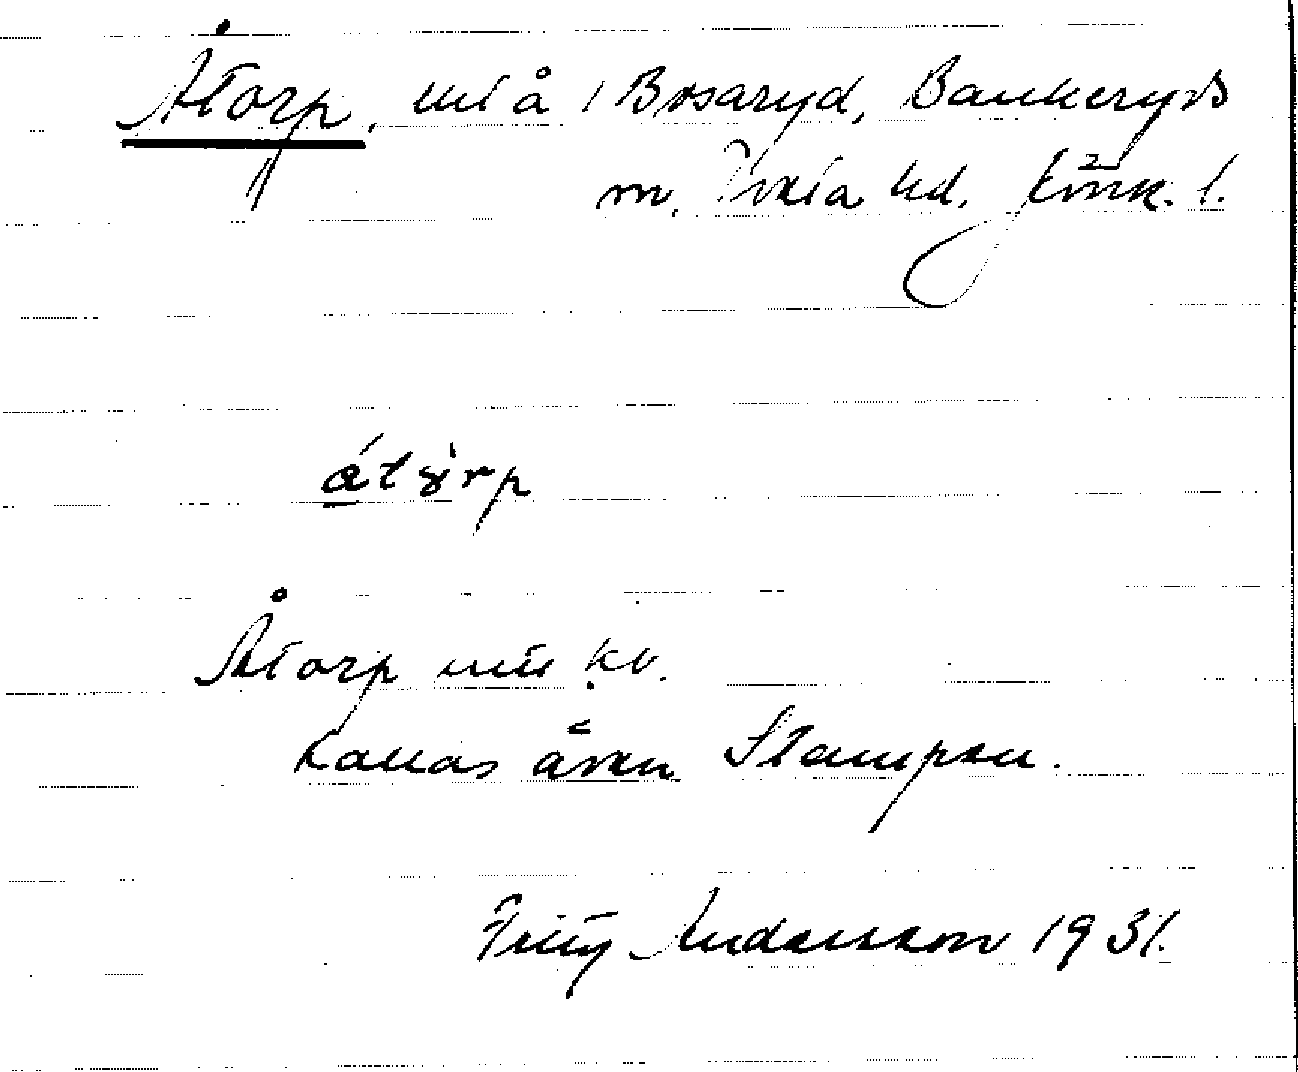 Åtorp, utj å i Bosaryd, Bankeryds
sn. Tveta hd. Jönk. l.
åtorp
Åtorp
kallas även Stampen.
Fritz Andersson 1931.